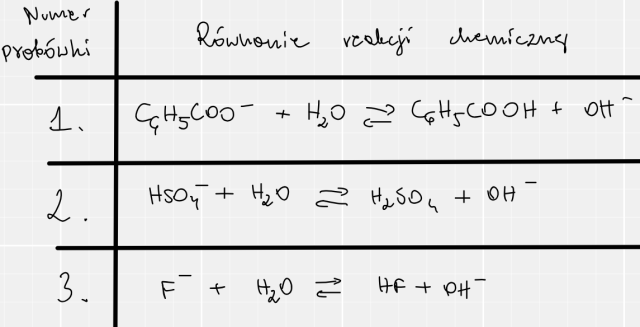 Numer probówki
Równanie reakcji chemicznej
1. C₆H₅COO⁻ + H₂O ⇄ C₆H₅COOH + OH⁻
2. HSO₄⁻ + H₂O ⇄ H₂SO₄ + OH⁻
3. F⁻ + H₂O ⇄ HF + OH⁻